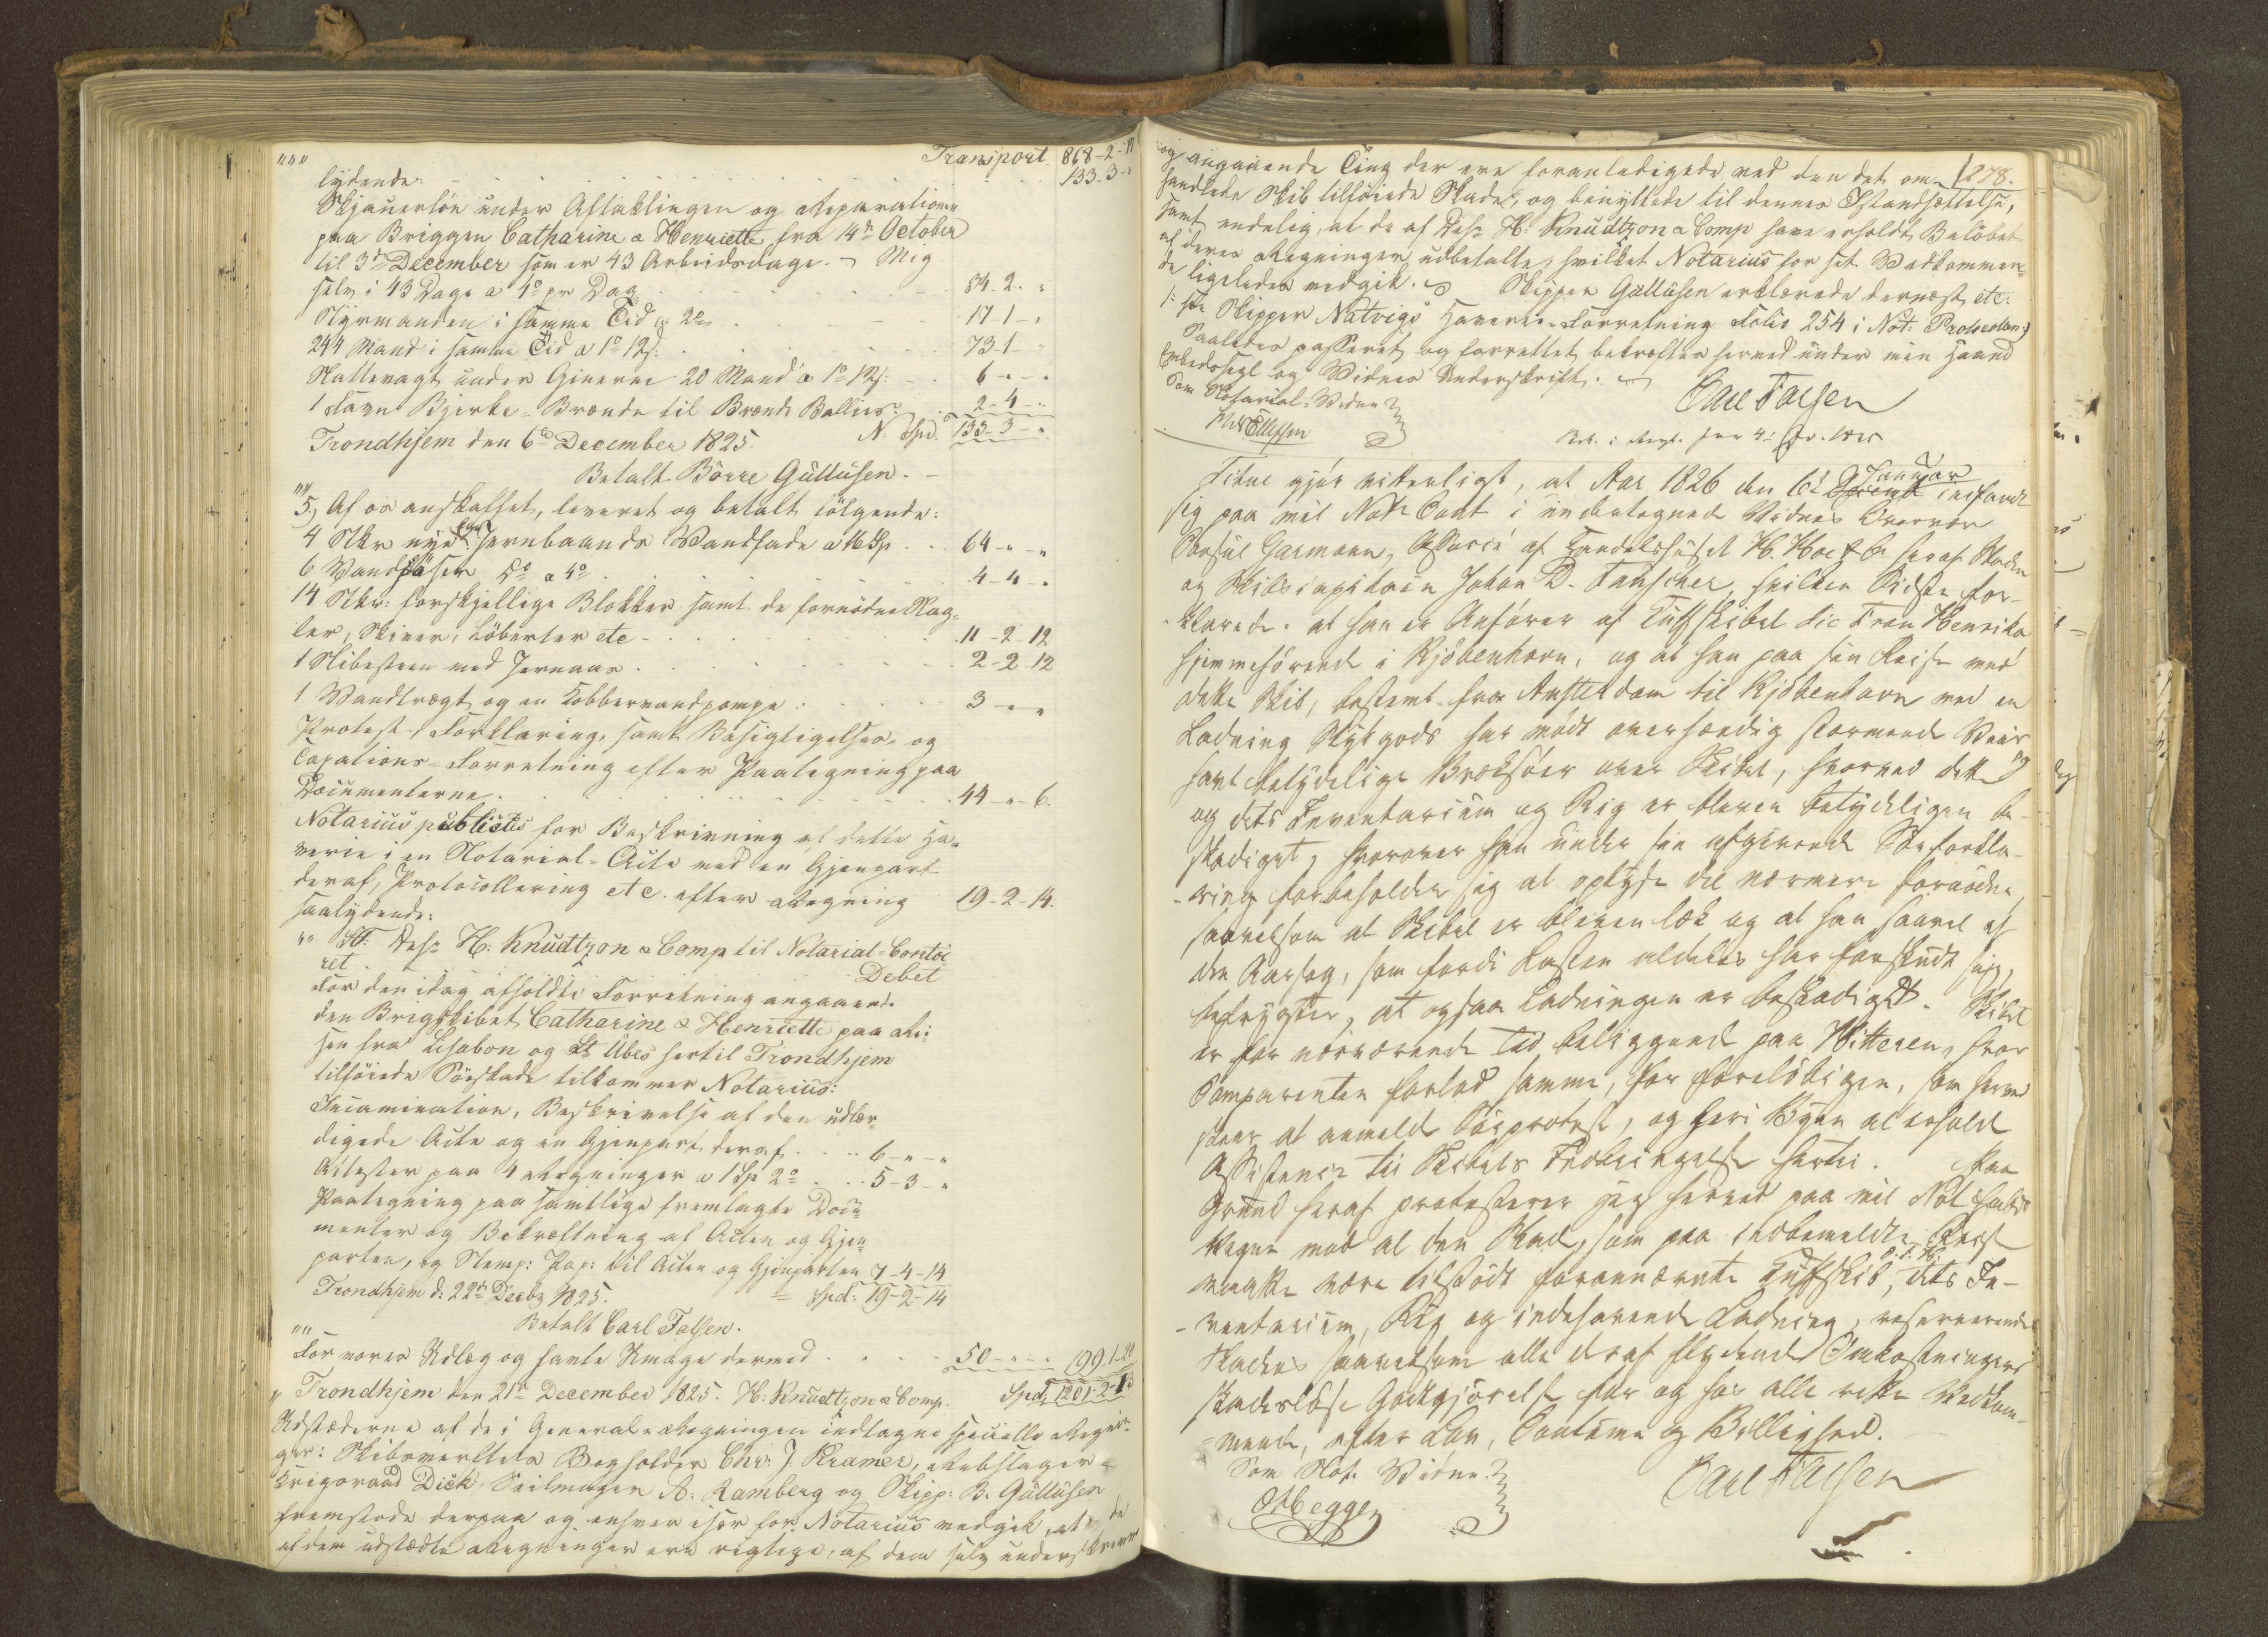 """  Transport 868-2-11
lydende: 133-3-"
Skjauerløn under Aftaklingen og Reparationen
paa Briggen Catharine & Henriette fra 14de October
til 3de December som er 43 Arbeidsdage. Mig
selv i 43 Dage a 4o pr Dag 34-2-"
Styrmanden i samme Tid a 2o 17-1-"
244 Mand i samme Tid a 1o 12s: 73-1-"
Nattevagt under Ginerne 20 Mand a 1o 12s: 6-"-"
1 Favn Bjerke-Brænde til Brænde 2-4-"
Trondhjem den 6te December 1825. N. Spd. 133-3-"
Betalt Børre Güllüsen.
5) Af os anskaffet, leveret og betalt følgende:
4 Stkr nye Jernbaands Vandfade a 16 Sp 64-"-"
6 4-4-"
14 Stkr: forskjellige Blokker samt de fornødne Nag-
ler, Skiver, Løberter etc 11-2-12
1 Slibesteen med Jernaas 2-2-12
1 Vandtragt og en Kobbervandpompe 3-"-"
Protest, Forklaring, samt Besigtigelses- og
Taxations-Forretning efter Paategning paa
Documenterne 44-"-6.
Notarius publicus for Beskrivning af dette Ha-
verie i en Notarial-Acte med en Gjenpart
deraf, Protocollering etc. efter Regning 19-2-14.
saalydende:
Hr. H: Knudtzon & Comp til Notarial-Contoi
ret Debet
For den idag afholdte Forretning angaaende
den Brigskibet Catharine & Henriette paa Rei-
sen fra Lisabon og St Übes hertil Trondhjem
tilføiede Søeskade tilkommer Notarius:
Incamination, Beskrivelse af den udfær-
digede Acte og en Gjenpart deraf 6-"-"
Attester paa 4 Regninger a 1 Sp 2o 5-3-"
Paategning paa samtlige fremlagte Docu-
menter og Bekræftning af Acten og Gjen-
parten, og Stemp: Pap: til Acten og Gjenparten 7-4-14
Trondhjem d: 22de Decbr 1825. Spd: 19-2-14
Betalt Carl Falsen.
For vores Udlæg og havte Umage dermed 50-"-"
Trondhjem den 21de December 1825. H: Knudtzon & Comp. Spd 1201-2-13
Udstæderne af de i General-Regningen indtagne specielle Regnin-
ger: Skibsverftets Bogholder Chr: J. Kramer, Rebslager
Krigsraad Dick, Seilmager A: Ramberg og Skipp: B. Güllüsen
fremstode derpaa og enhver især for Notarius vedgik, at de
af dem udstædte Regninger ere rigtige, af dem selv underskrevne
278.
og angaaende Ting der ere foranledigede ved den det om-
handlede Skib tilføiede Skade, og benyttede til dennes Istandsættelse,
samt endelig, at de af Hr H: Knudtzon & Comp have erholdt Beløbet
af deres Regninger udbetalte, hvilket Notarius for sit Vedkommen-
de ligeledes vedgik. Skipper Güllüsen erklærede dernæst etc:
Skipper Natvigs Haverie-Forretning Folio 254 i Not: Protocolen:)
Saaledes passeret og forrettet bekræftes herved under min Haand
Embedssegl og Vidnes Underskrift.
Som Notarial-Vidne Carl Falsen
Ellefsen
Titul gjør vitterligt, at Aar 1826 den 6te Januar indfandt
sig paa mit Not: Cont i undertegnede Vidnes Overvær
Consul Garmann, Associé af Handelshuset H. Hoe & Co her af Staden
og Skibscapitain Johan D. Fanscher, hvilken Sidste for-
klarede: at han er Anfører af Tufskibet die Frau Henrika
hjemmehørende i Kjøbenhavn, og at han paa sin Reise med
dette Skib, bestemt fra Amsterdam til Kjøbenhavn med en
Ladning Stykgods har mødt overhændig stormende Veir
samt betydelige Bræksøer over Skibet, hvorved dette
og dets Inventarium og Rig er bleven betydeligen be-
skadiget, hvorover han under sin afgivende Søeforkla-
ring forbeholder sig at oplyse det nærmere fornødne,
saavelsom at Skibet er bleven læk og at han saavel af
den Aarsag, som fordi Lasten aldeles har forskudt sig,
befrygter, at ogsaa Ladningen er beskadiget. Skibet
er for nærværende Tid beliggende paa Hitteren, hvor
Comparenten forlod samme, for foreløbigen, som herved
skeer at anmelde Søeprotest, og her i Byen at erholde
Assistence til Skibets Indbringelse hertil. Paa
Grund heraf protesterer jeg herved paa mit Not: Embeds
Vegne mod al den Skade, som paa indbemeldte Reise
maatte være tilstødt forannævnte Tufskib, D. F. H. dets In-
ventarium, Rig og indehavende Ladning, reserverende
Skadens saavelsom alle deraf flydende Omkostningers
skadesløse Godtgjørelse for og hos alle rette Vedkom-
mende, efter Lov, Coutume og Billighed.
Som Not: Vidne Carl Falsen
Hegge